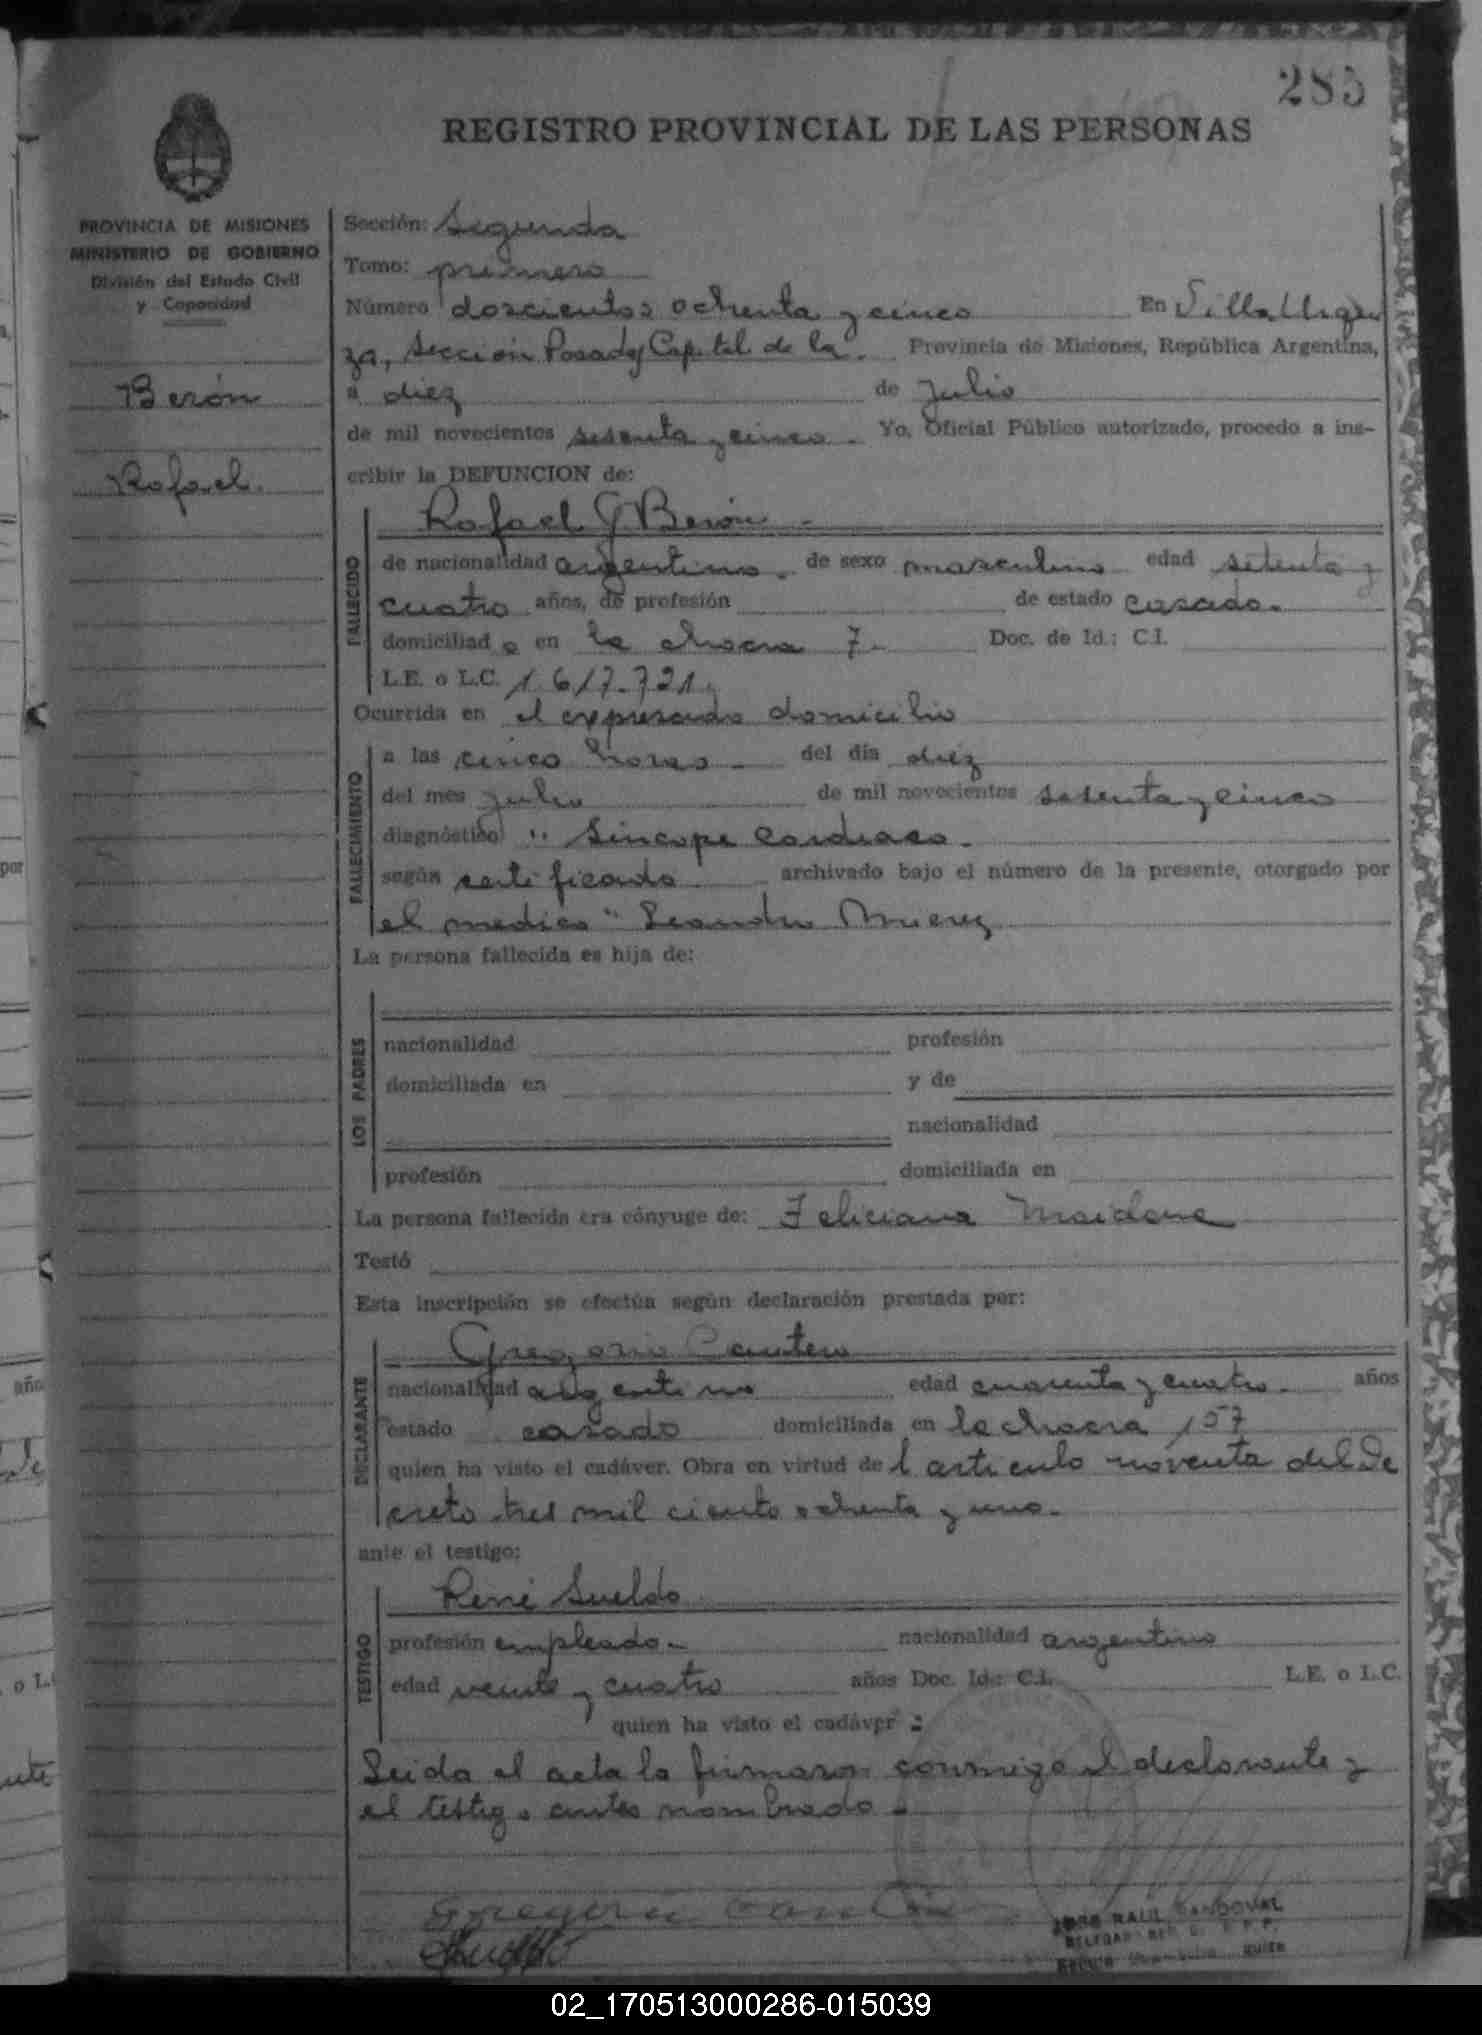 285
REGISTRO PROVINCIAL DE LAS PERSONAS
PROVINCIA DE MISIONES
MINISTERIO DE GOBIERNO
División del Estado Civil
y Capacidad
Berón
Rafael.
Sección: Segunda
Tomo: primero
Número doscientos ochenta y cinco En Villa Urqui
za, Sección Posadas Capital de la. Provincia de Misiones, República Argentina,
a diez de Julio
de mil novecientos setenta y cinco. Yo, Oficial Público autorizado, procedo a ins-
cribir la DEFUNCION de:
FALLECIDO
Rafael G Berón -
de nacionalidad argentino. de sexo masculino edad setenta y
cuatro años, de profesión de estado casado.
domiciliad o en la chacra 7. Doc. de Id.: C.I.
L.E. o L.C. 1.617.721.
Ocurrida en el expresado domicilio
FALLECIMIENTO
a las cinco horas - del día diez
del mes julio de mil novecientos setenta y cinco
diagnóstico " Sincope Cardiaco.
según certificado archivado bajo el número de la presente, otorgado por
el medico " Leandro
La persona fallecida es hija de:
LOS PADRES
nacionalidad profesión
domiciliada en y de
nacionalidad
profesión domiciliada en
La persona fallecida era cónyuge de: Feliciana Maidana
Testó
Esta inscripción se efectúa según declaración prestada por:
DECLARANTE
Gregorio Cantero
nacionalidad argentino edad cuarenta y cuatro. años
estado casado domiciliada en la chacra 157
quien ha visto el cadáver. Obra en virtud de l articulo noventa del De
creto tres mil ciento ochenta y uno.
ante el testigo:
TESTIGO
René Sueldo
profesión empleado. nacionalidad argentino
edad veinte y cuatro años Doc. Id.: C.I. L.E. o L.C.
quien ha visto el cadáver -
Leida el acta la firmaron conmigo el declarante y
el testigo antes nombrado -
Gregorio
JOSE RAUL SANDOVAL
02_170513000286-015039